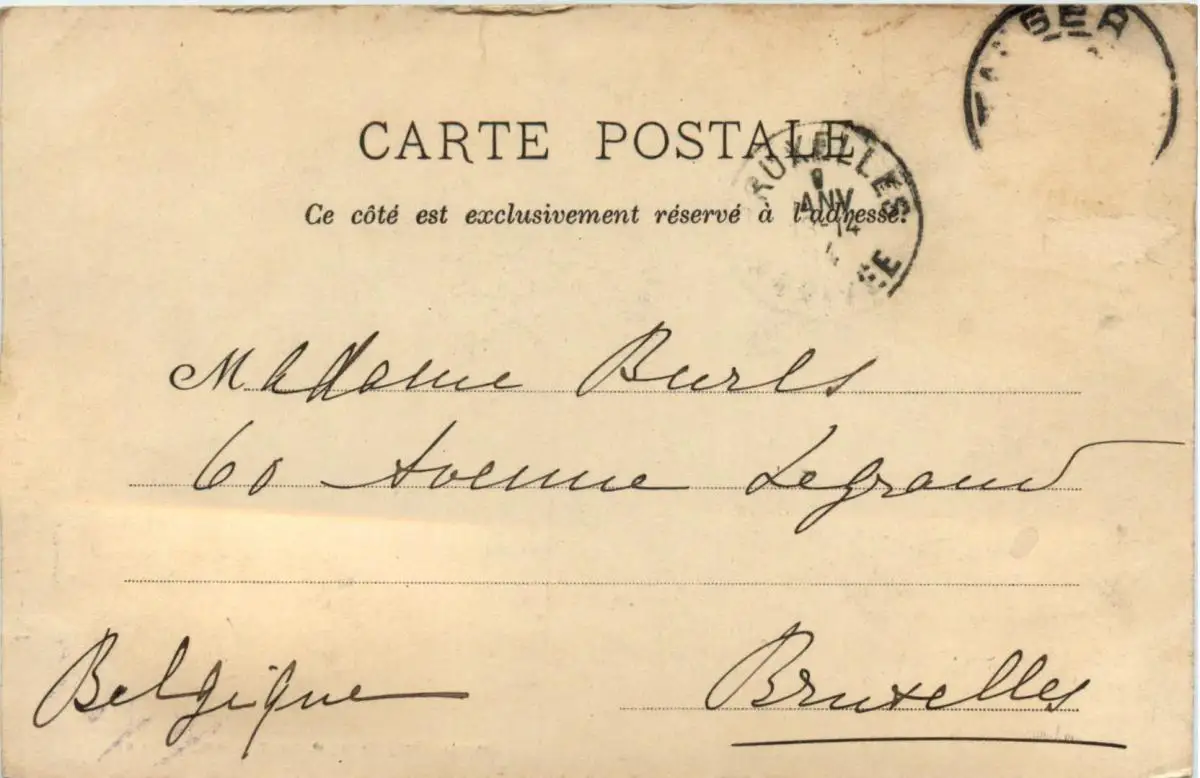 TANGER
CARTE POSTALE
BRUXELLES
JANV
14
Ce côté est exclusivement réservé à l'adresse.
Madame Burls
60 Avenue Legrand
Belgique
Bruxelles